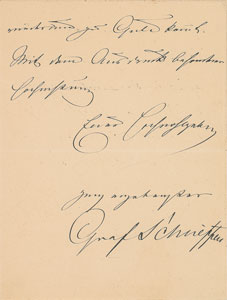 wieder und zu Gute kam.
Mit dem Ausdruck besonderer
Hochachtung
Euer Hochwohlgeboren
ganz ergebenster
Graf Schlieffen